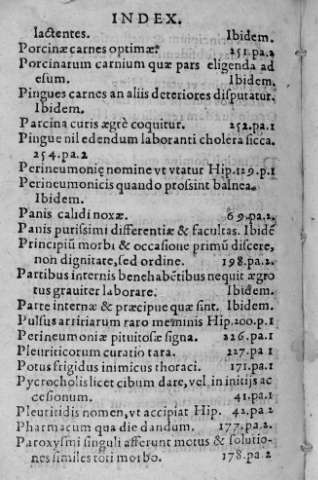 INDEX.
lactentes. Ibidem.
Porcinæ carnes optimæ? 251.pa.2
Porcinarum carnium quæ pars eligenda ad
esum. Ibidem.
Pingues carnes an aliis deteriores disputatur.
Ibidem.
Parcina cutis ægrè coquitur. 252.pa.1
Pingue nil edendum laboranti cholera sicca.
254.pa.2
Perineumonię nomine vt vtatur Hip.129.p.1
Perineumonicis quando prossint balnea.
Ibidem.
Panis calidi noxæ. 69.pa.2.
Panis purissimi differentiæ & facultas. Ibidē
Principiū morbi & occasione primū discere,
non dignitate, sed ordine. 198.pa.2.
Partibus internis benehabētibus nequit ægro
tus grauiter laborare. Ibidem.
Parte internæ & præcipue quæ sint. Ibidem.
Pulsus arririarum raro meminis Hip.200.p.1
Perineumoniæ pituitosæ signa. 226.pa.1
Pleuriticorum curatio rara. 227.pa.1
Potus frigidus inimicus thoraci. 171.pa.1
Pycrocholis licet cibum dare, vel in initijs ac
cesionum. 41.pa.1
Pleuritidis nomen, vt accipiat Hip. 42.pa.2
Pharmacum qua die dandum. 177.pa.2.
Paroxysmi singuli afferunt motus & solutio-
nes similes toti morbo. 178.pa.2